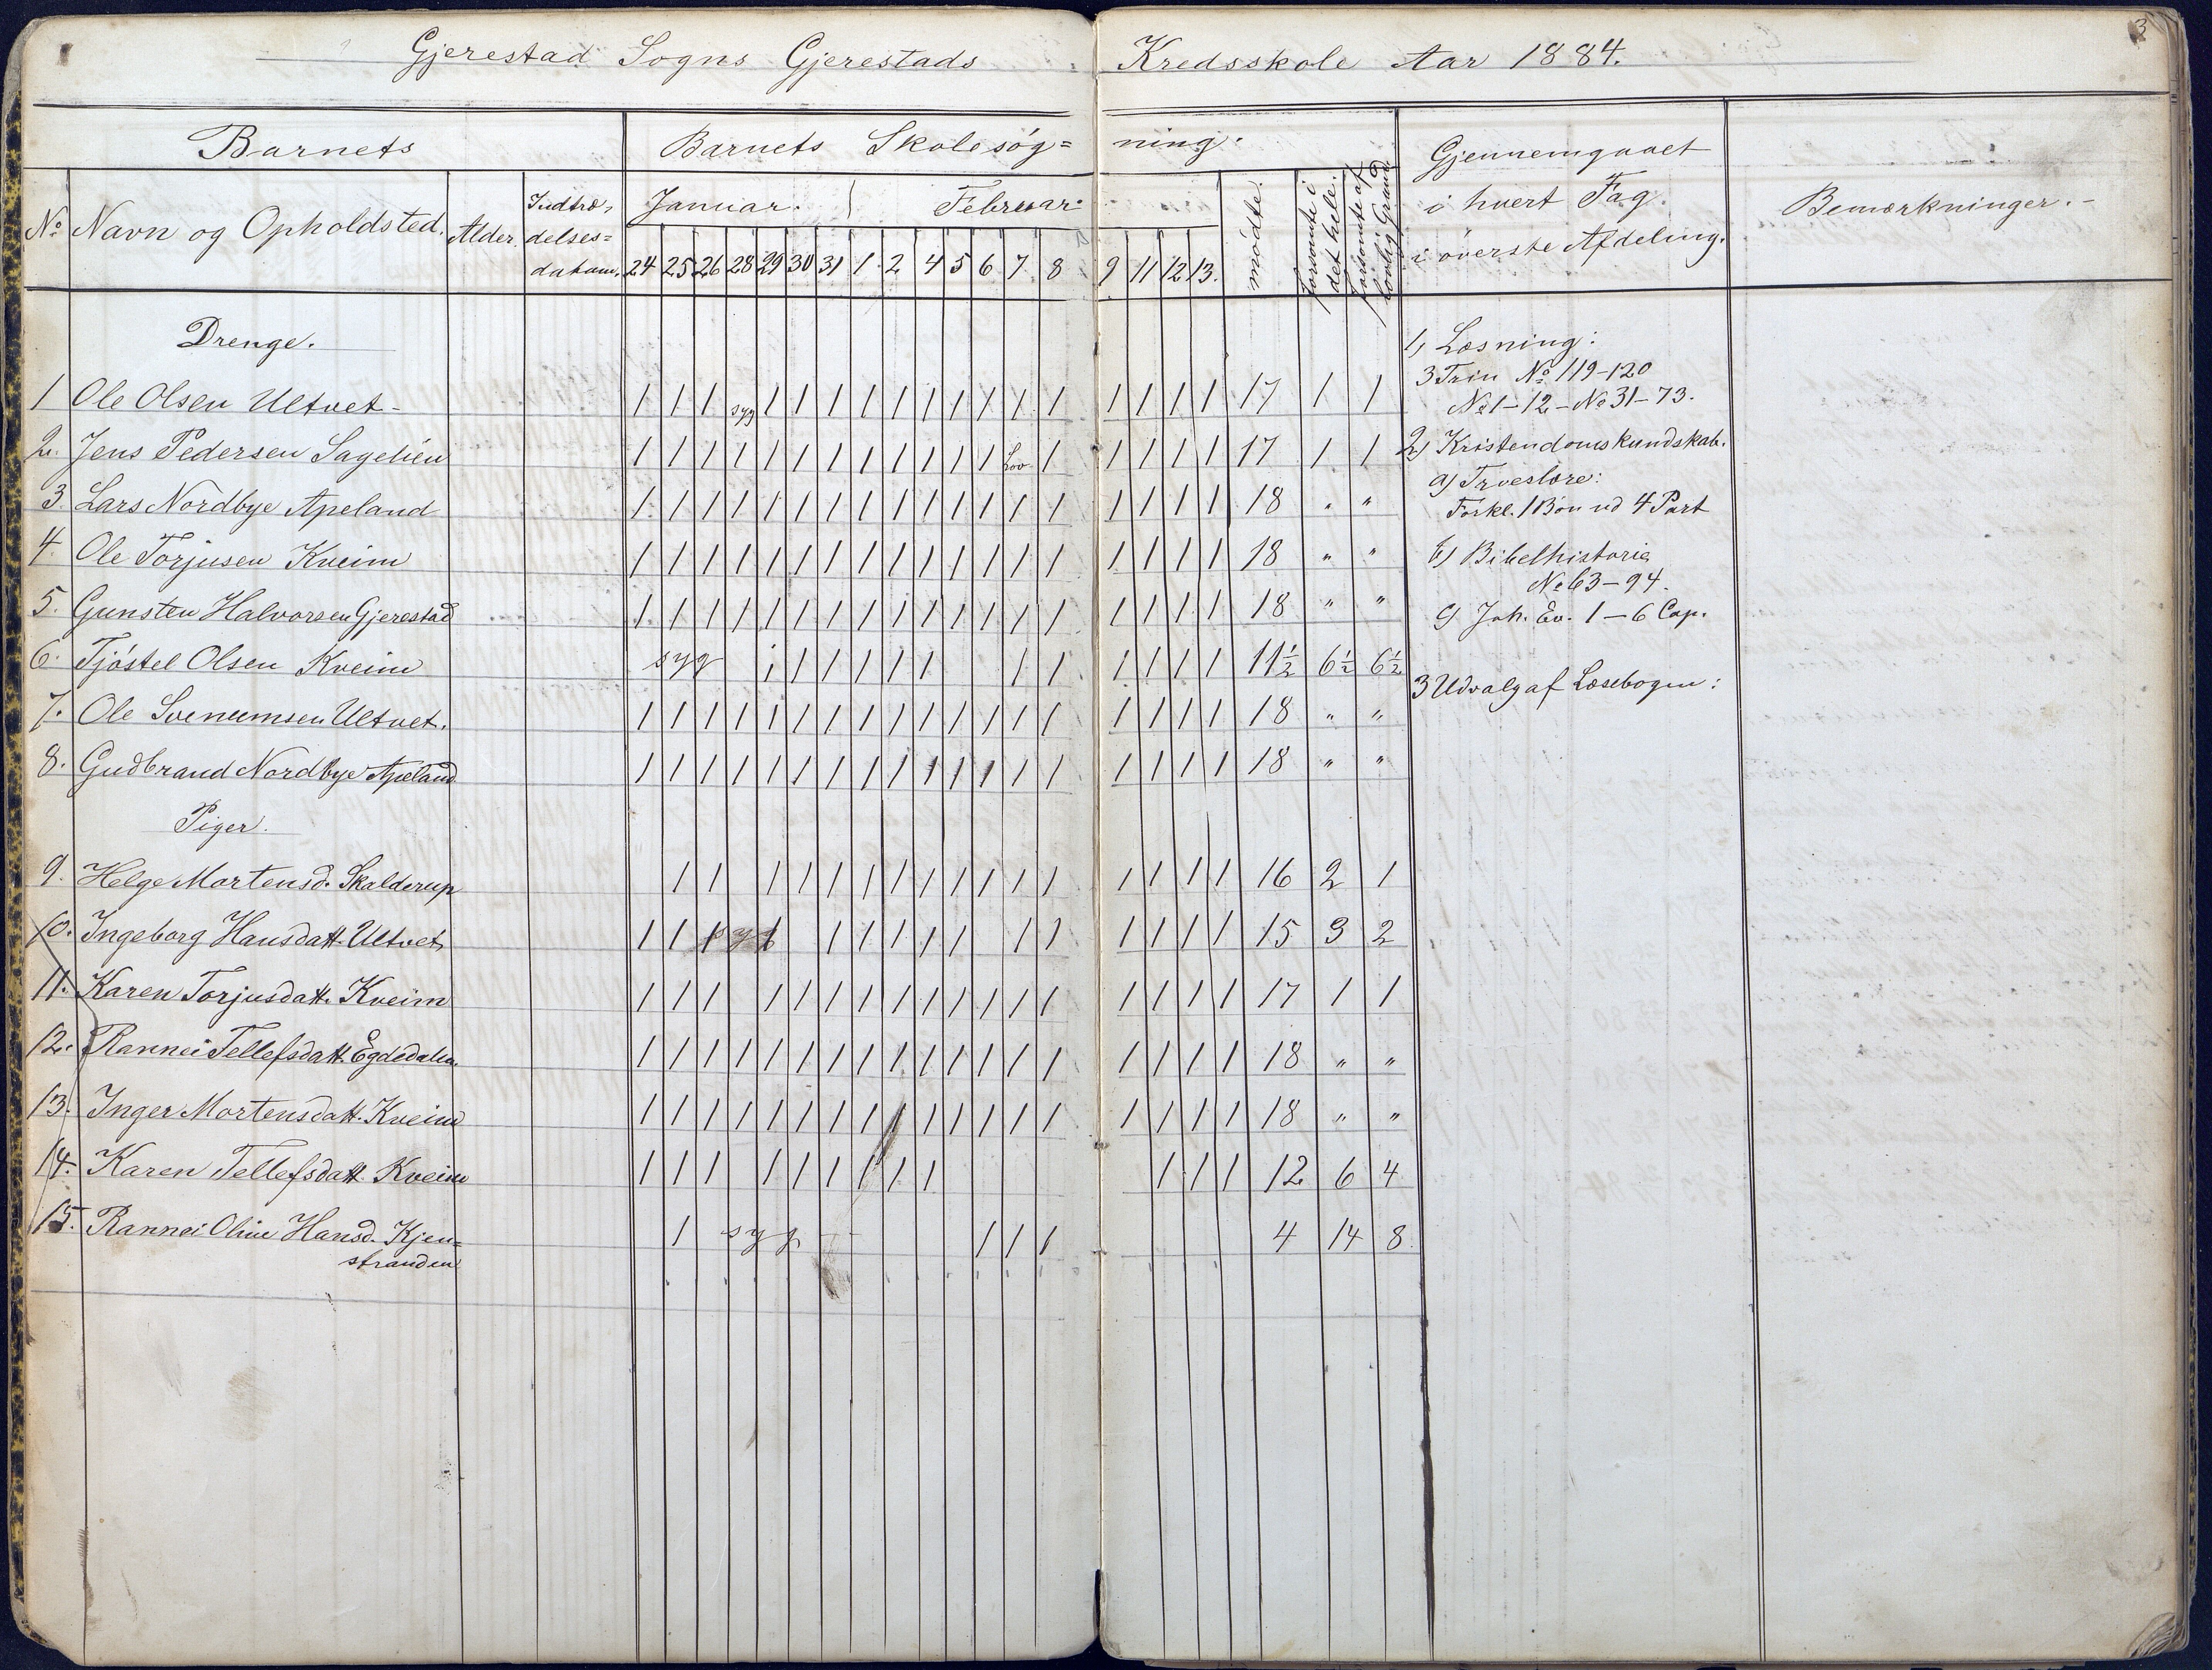 3
Gjerestad Sogns Gjerestads Kredsskole Aar 1884.
Barnets Barnets Skolesøg= ning. Gjennemgaaet i hvert Fag. i øverste Afdeling. Bemærkninger.-
No Navn og Opholdsted. Alder. Indtræ- delses= datum. Januar. Februar. mødte. forsømte i det hele. forsømte af lovlig Grund
24 25 26 28 29 30 31 1 2 4 5 6 7 8 9 11 12 13.
Drenge.
1 Ole Olsen Ultvet- 1 1 1 syg 1 1 1 1 1 1 1 1 1 1 1 1 1 1 17 1 1
2. Jens Pedersen Sagelien 1 1 1 1 1 1 1 1 1 1 1 1 Lov 1 1 1 1 1 17 1 1
3. Lars Nordbye Apeland 1 1 1 1 1 1 1 1 1 1 1 1 1 1 1 1 1 1 18 " "
4. Ole Torjusen Kveim 1 1 1 1 1 1 1 1 1 1 1 1 1 1 1 1 1 1 18 " "
5. Gunsten Halvorsen Gjerestad 1 1 1 1 1 1 1 1 1 1 1 1 1 1 1 1 1 1 18 " "
6. Tjøstel Olsen Kveim syg 1 1 1 1 1 1 1 1 1 1 1 1 11½ 6½ 6½
7. Ole Svenumsen Ultvet. 1 1 1 1 1 1 1 1 1 1 1 1 1 1 1 1 1 1 18 " "
8. Gudbrand Nordbye Apeland 1 1 1 1 1 1 1 1 1 1 1 1 1 1 1 1 1 1 18 " "
Piger.
9. Helge Mortensd. Skalderup 1 1 1 1 1 1 1 1 1 1 1 1 1 1 1 1 16 2 1
10. Ingeborg Hansdatt. Ultvet 1 1 1 1 1 1 1 1 1 1 1 1 1 1 15 3 2
11. Karen Torjusdatt. Kveim 1 1 1 1 1 1 1 1 1 1 1 1 1 1 1 1 1 17 1 1
12. Rannei Tellefsdatt. Egdedalen. 1 1 1 1 1 1 1 1 1 1 1 1 1 1 1 1 1 1 18 " "
13. Inger Mortensdatt. Kveim 1 1 1 1 1 1 1 1 1 1 1 1 1 1 1 1 1 1 18 " "
14. Karen Tellefsdatt. Kveim 1 1 1 1 1 1 1 1 1 1 1 1 12 6 4
15. Rannei Oline Hansd. Kjen= 1 syg 1 1 1 4 14 8
stranden
1) Læsning:
3 Trin No 119-120
No 1-12-No 31-73.
2) Kristendomskundskab.
a) Troeslære:
Forkl. 1 Bøn ud 4 Part
b) Bibelhistorie
No 63-94.
c) Joh. Ev. 1-6 Cap.
3 Udvalg af Læsebogen: